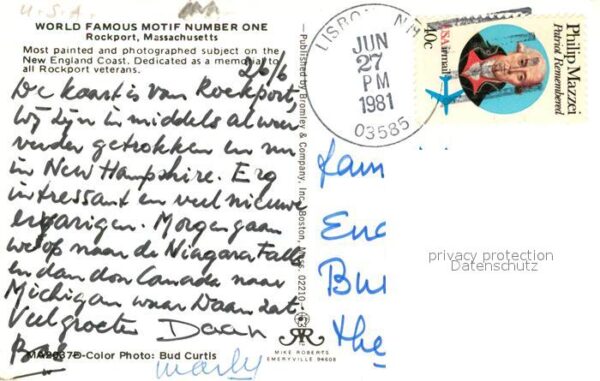 U.S.A.
WORLD FAMOUS MOTIF NUMBER ONE
Rockport, Massachusetts
Most painted and photographed subject on the
New England Coast. Dedicated as a memorial to
all Rockport veterans.
26/6
De kaart is van Rockport,
wij zijn inmiddels al weer
verder getrokken en nu
in New Hampshire. Erg
intressant en veel nieuwe
ervarigen. Morgen gaan
we op naar de Niagara Falls
en dan door Canada naar
Michigan waar Daan zat.
Veel groeten Daan
Bas
Marly
MA-2037-D-Color Photo: Bud Curtis
Published by Bromley & Company, Inc., Boston, Mass. 02210
MIKE ROBERTS
EMERYVILLE 94608
LISBON, NH
JUN
27
PM
1981
03585
USAirmail
40c
Philip Mazzei
Patriot Remembered
Fam
En
Bu
the
privacy protection
Datenschutz